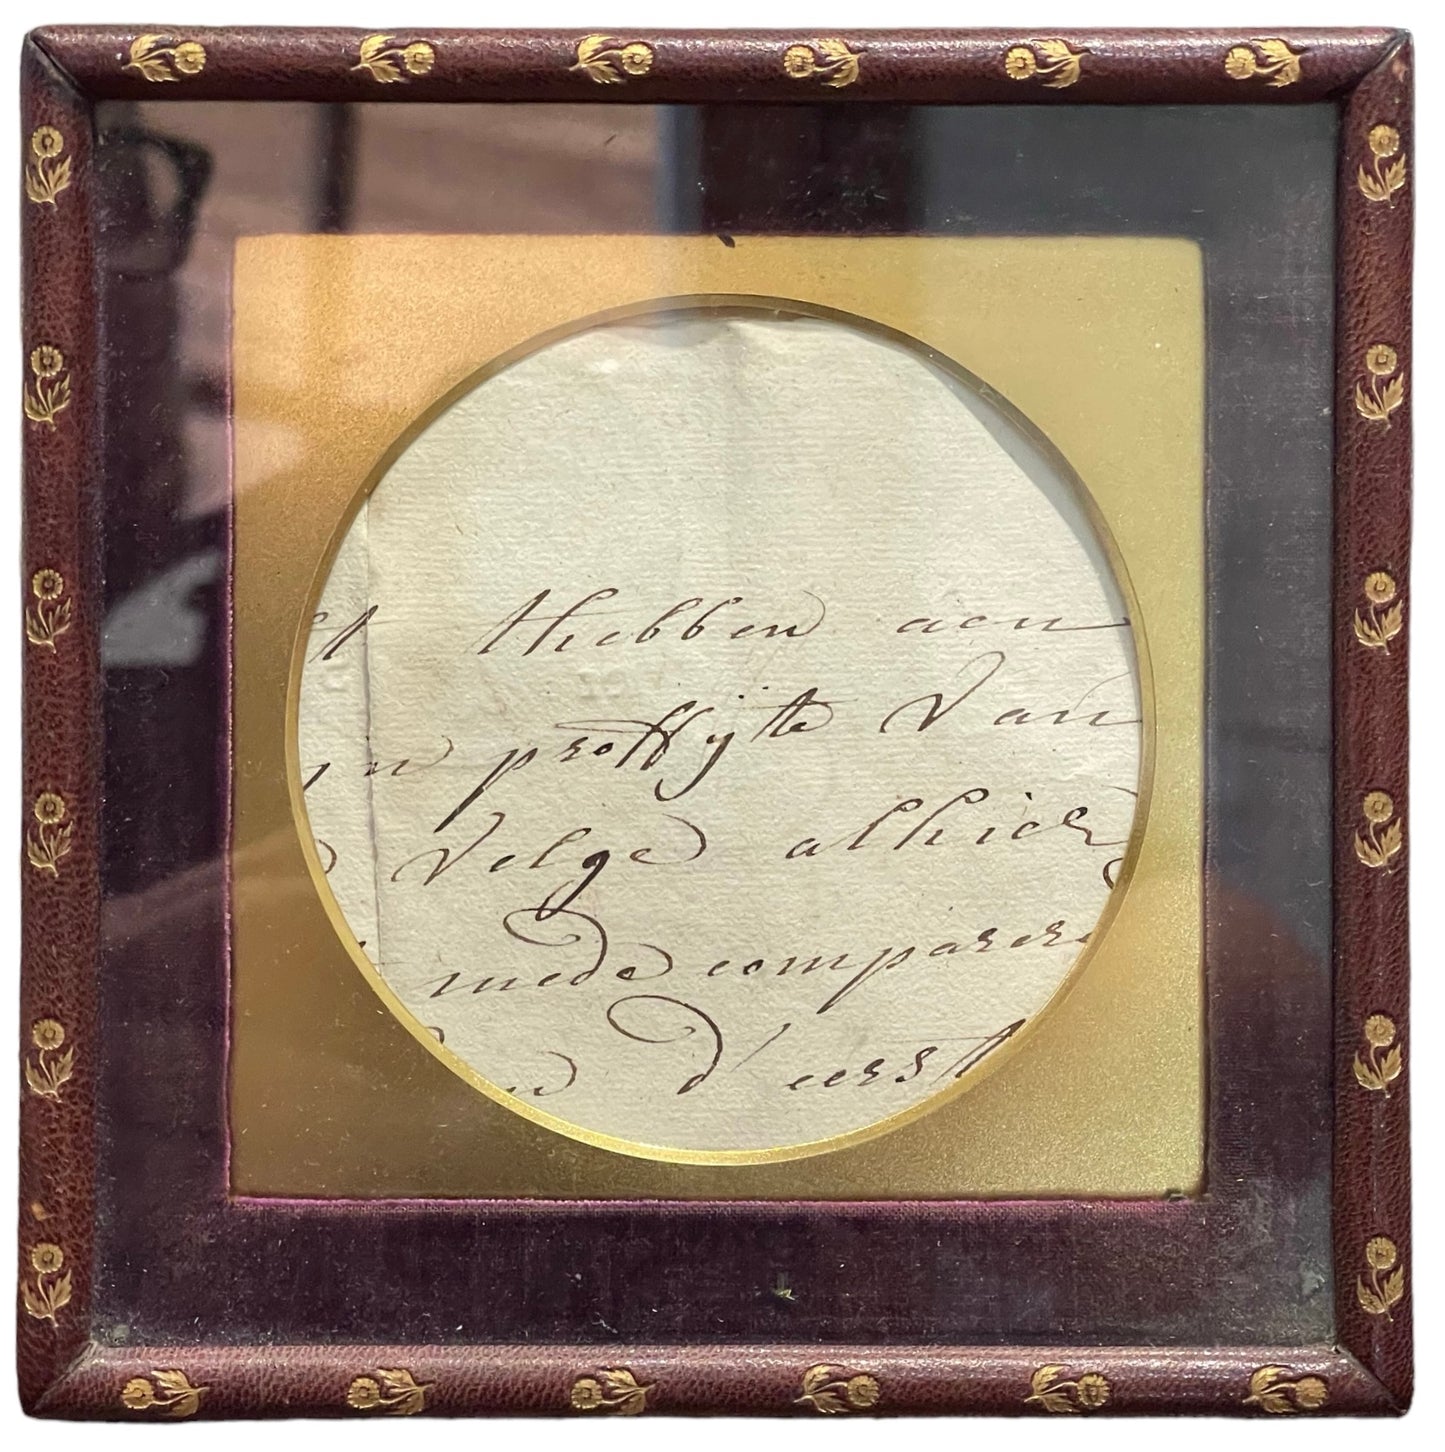 t thebben aen
yn proffyte van
velge alhier
mede comparere
en d'eerst